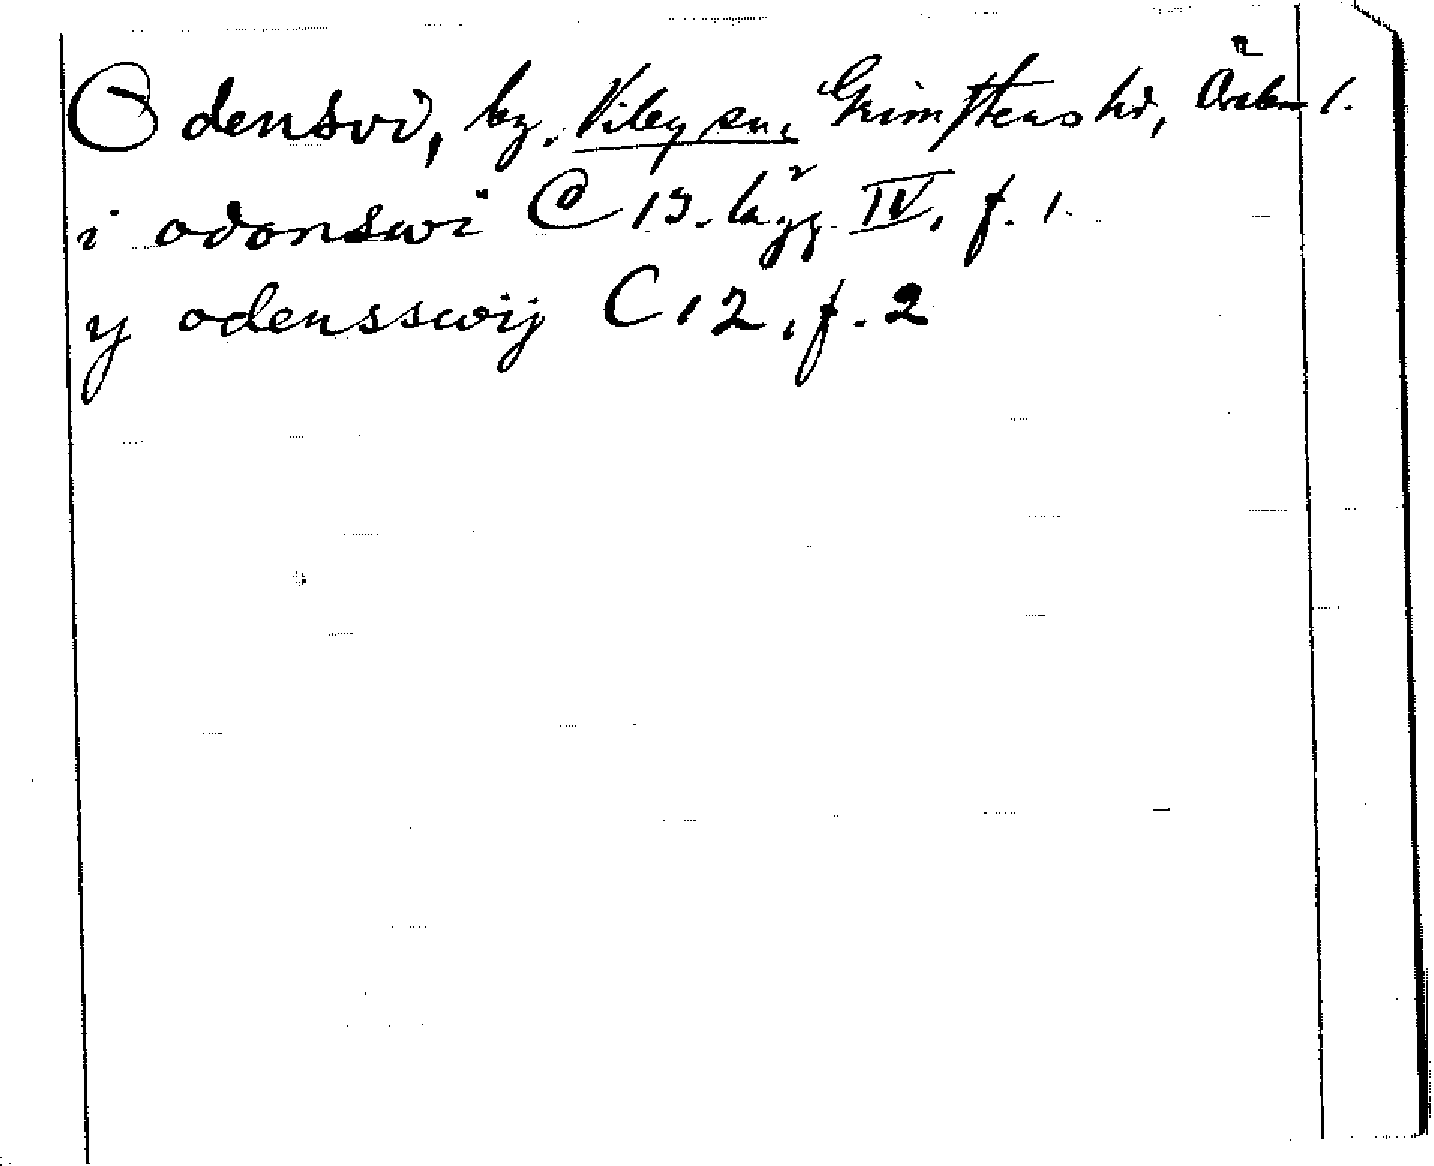 Odensvi, by, Viby sn, Grimstens hd, Öreb. l.
i odonswi C 13. lägg IV, f. 1.
y odensswij C 12, f. 2